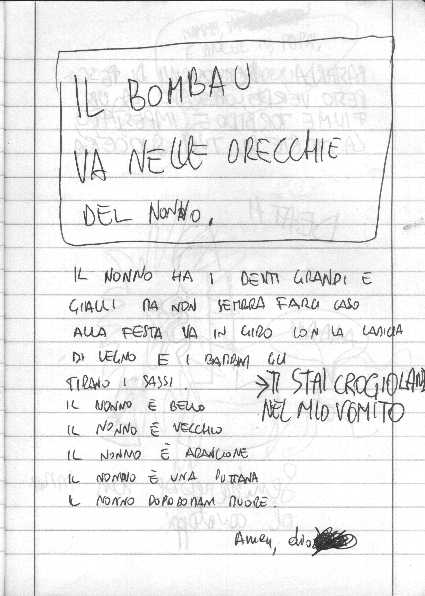 IL BOMBAU
VA NELLE ORECCHIE
DEL NONNO.
IL NONNO HA I DENTI GRANDI E
GIALLI MA NON SEMBRA FARCI CASO
ALLA FESTA VA IN GIRO CON LA
DI LEGNO E I BAMBINI GLI
TIRANO I SASSI.
→TI STAI CROGIOLAND
NEL MIO VOMITO
IL NONNO È BELLO
IL NONNO È VECCHIO
IL NONNO È ARANCIONE
IL NONNO È UNA PUTTANA
IL NONNO DOPODOMANI MUORE.
Amen,